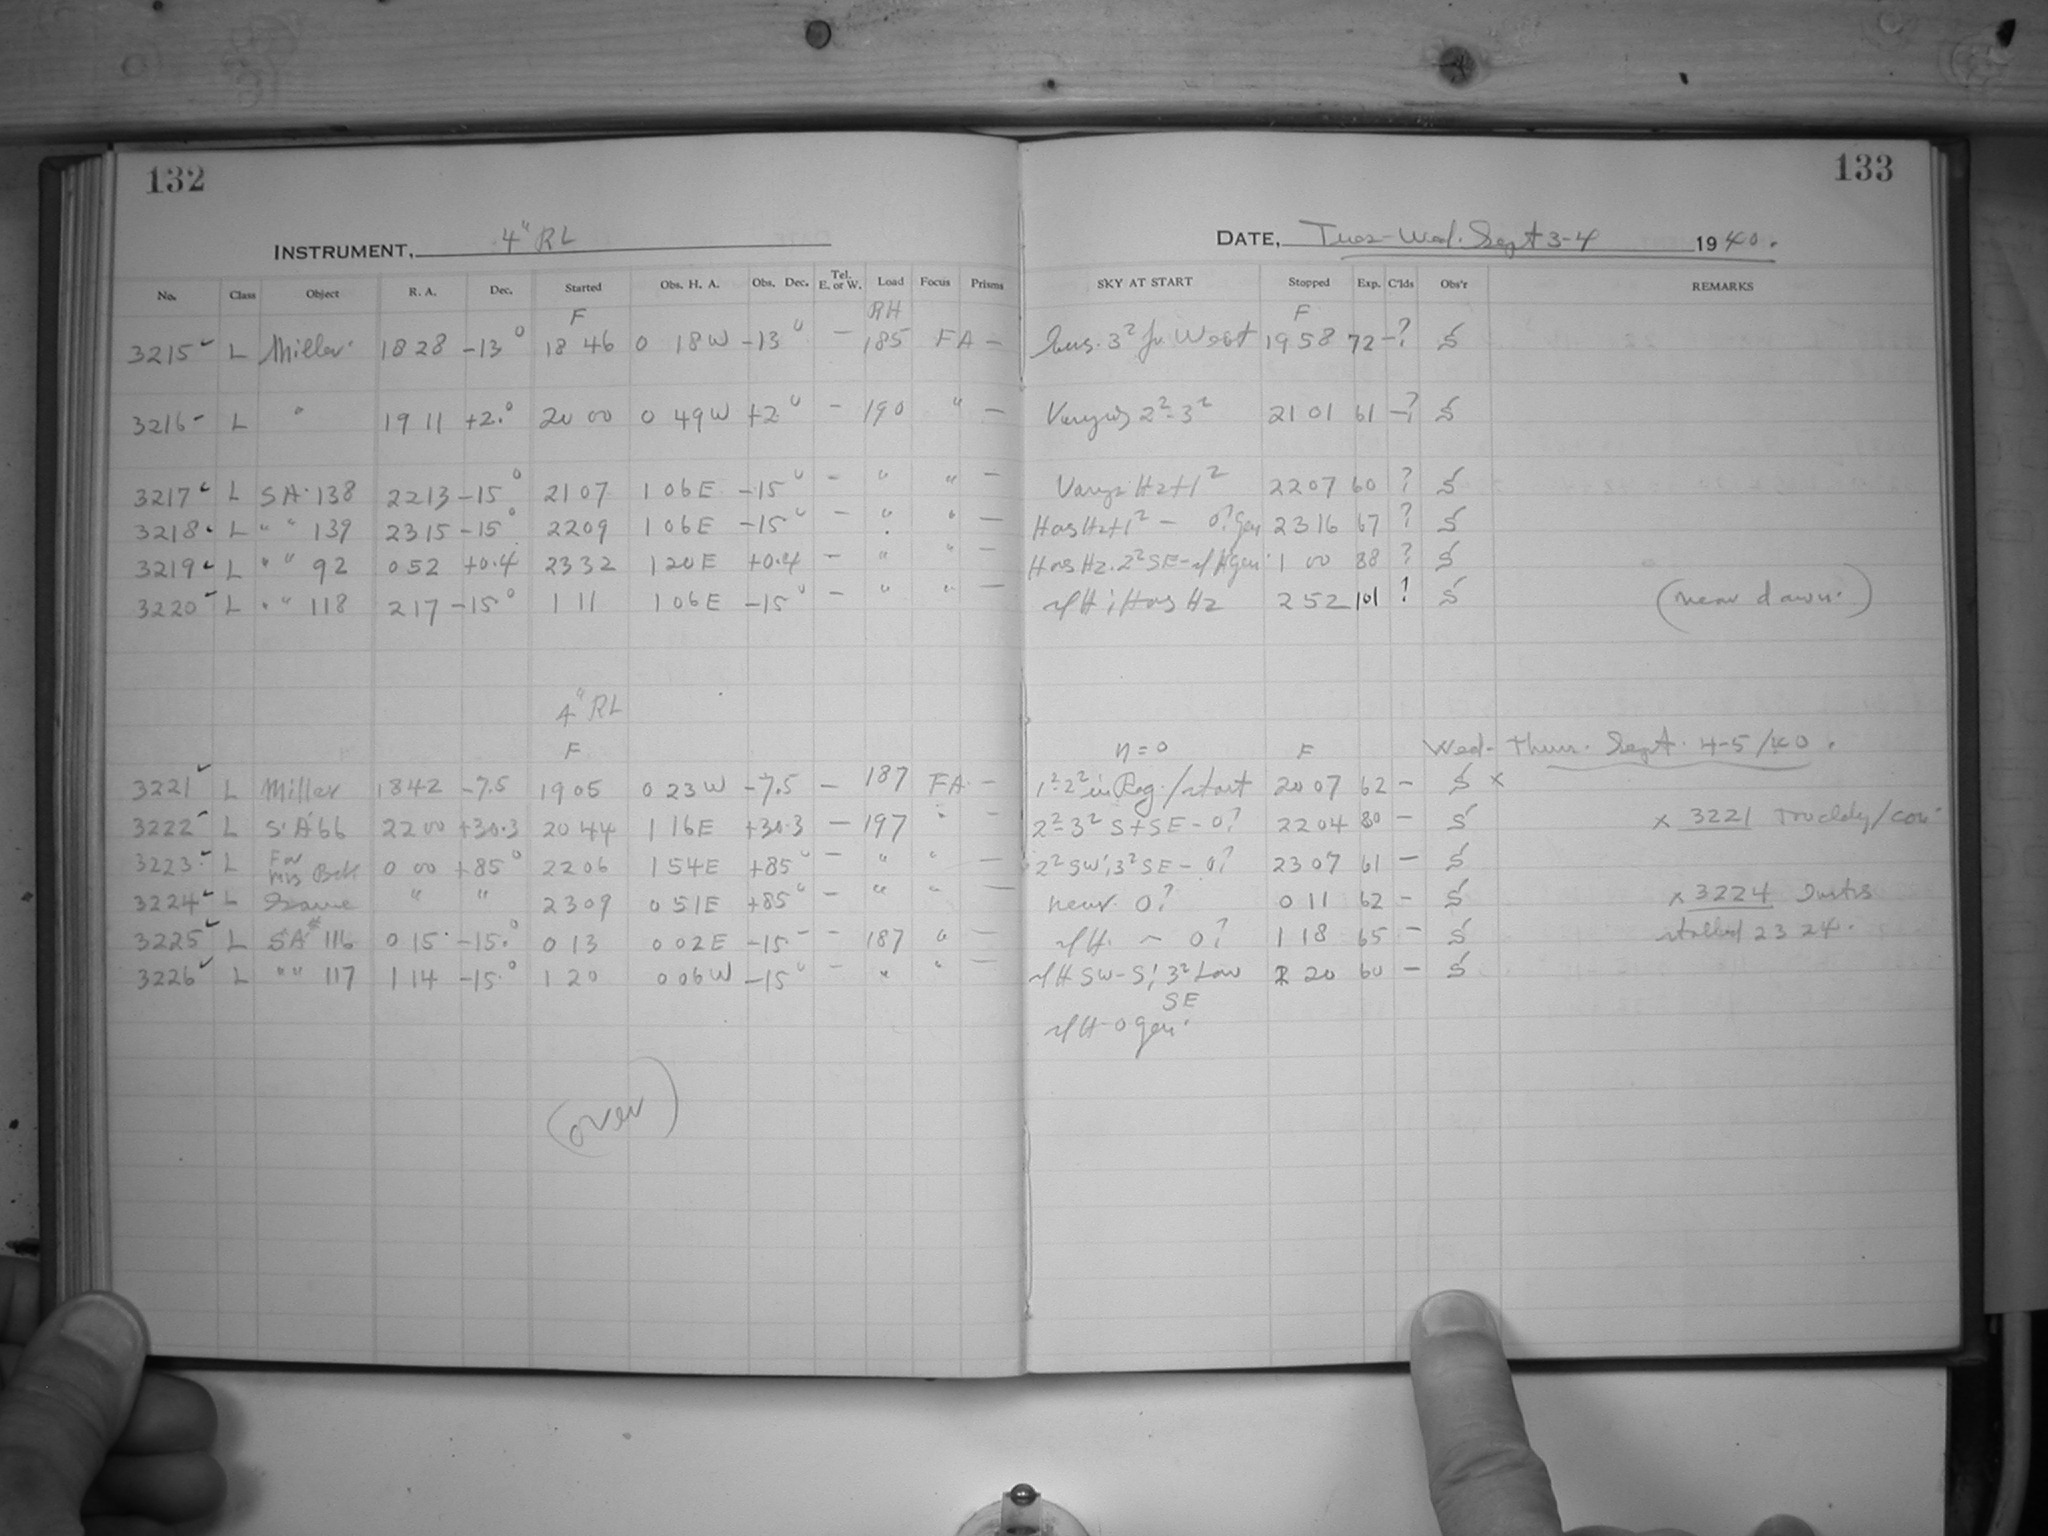 132
133
INSTRUMENT, 4" RL
DATE, Tues-Wed. Sept 3-4 1940.
No. Class Object R. A. Dec. Started Obs. H. A. Obs. Dec. Tel. E. or W. Load Focus Prisms SKY AT START Stopped Exp. C'lds Obs'r REMARKS
F RH F
3215 L Miller 18 28 -13° 18 46 0 18W -13° - 185 FA - 3² West 19 58 72 -? S
3216 L " 19 11 +2.° 20 00 0 49W +2° - 190 " - Varying 2²-3² 21 01 61 -? S
3217 L SA 138 22 13 -15° 21 07 1 06E -15° - " " - Hz+1² 22 07 60 ? S
3218 L " " 139 23 15 -15° 22 09 1 06E -15° - " " - Has Hz+1² - 0? Gen 23 16 67 ? S
3219 L " " 92 0 52 +0.4 23 32 1 20E +0.4 - " " - Has Hz. 2² SE - Gen 1 00 88 ? S
3220 L " " 118 2 17 -15° 1 11 1 06E -15° - " " - Has Hz 2 52 101 ? S (near dawn.)
4" RL
F n = 0 F Wed-Thur. Sept. 4-5/40.
3221 L Miller 18 42 -7.5 19 05 0 23W -7.5 - 187 FA - 1²-2² in Reg./start 20 07 62 - S x
3222 L S.A 66 22 00 +30.3 20 44 1 16E +30.3 - 197 " - 2²-3² S+SE - 0? 22 04 80 - S x 3221
3223 L For Mrs 0 00 +85° 22 06 1 54E +85° - " " - 2² SW; 3² SE - 0? 23 07 61 - S
3224 L Same " " 23 09 0 51E +85° - " " - near 0? 0 11 62 - S x 3224
3225 L SA# 116 0 15 -15.° 0 13 0 02E -15° - 187 " - 0? 1 18 65 - S stalled 23 24.
3226 L " " 117 1 14 -15.° 1 20 0 06W -15° - " " - SW-S; 3² Low 2 20 60 - S
SE
0 gen.
(over)